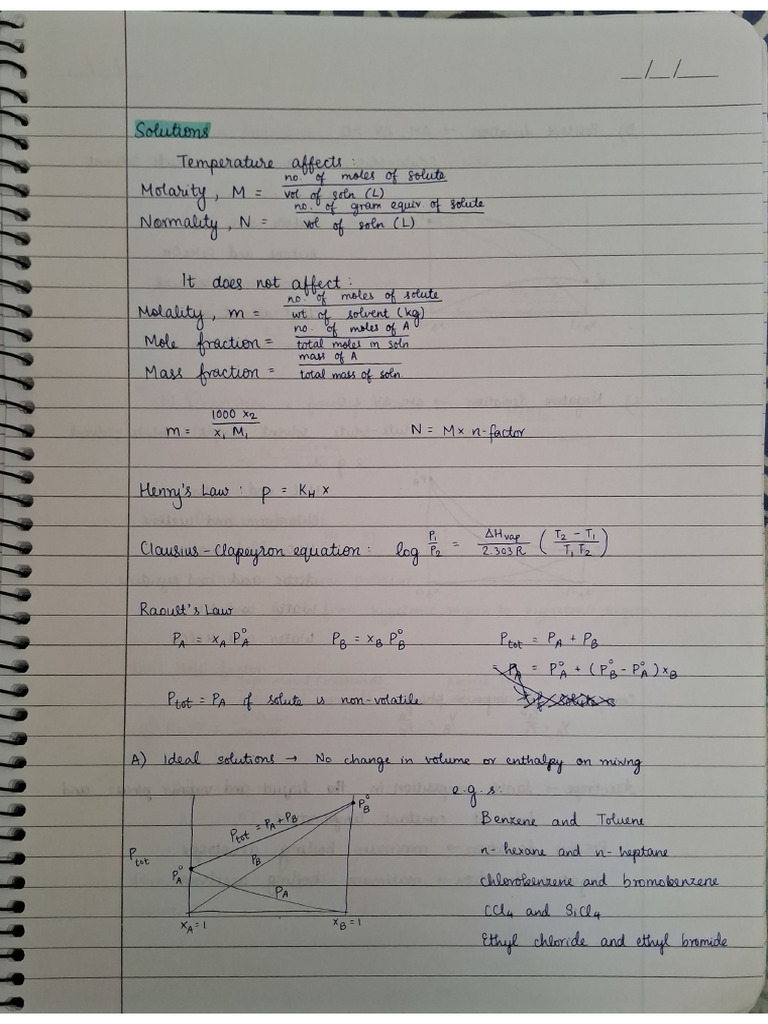 _/_/__
Solutions
Temperature affects:
Molarity, M = no. of moles of solute / vol of soln (L)
Normality, N = no. of gram equiv. of solute / vol of soln (L)
It does not affect:
Molality, m = no. of moles of solute / wt of solvent (kg)
Mole fraction = no. of moles of A / total moles in soln
Mass fraction = mass of A / total mass of soln.
m = 1000 x₂ / x₁ M₁ N = M × n-factor
Henry's Law : p = K_H x
Clausius-Clapeyron equation: log P₁/P₂ = ΔHvap / 2.303R ( T₂ - T₁ / T₁T₂ )
Raoult's Law
P_A = x_A P_A° P_B = x_B P_B° P_tot = P_A + P_B
= P_A° + (P_B° - P_A°) x_B
P_tot = P_A if solute is non-volatile
A) Ideal solutions → No change in volume or enthalpy on mixing
e.g.s:
Benzene and Toluene
n-hexane and n-heptane
chlorobenzene and bromobenzene
CCl₄ and SiCl₄
Ethyl chloride and ethyl bromide
P_B°
P_tot = P_A + P_B
P_tot
P_B
P_A°
P_A
x_A = 1 x_B = 1